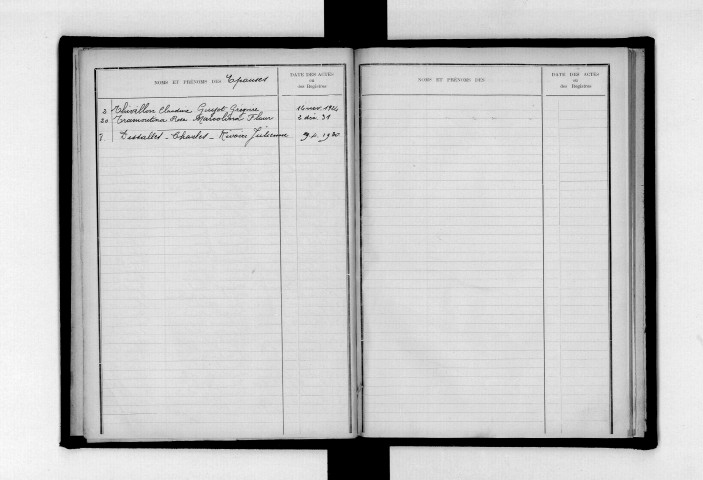 NOMS ET PRÉNOMS DES Epouses
DATE DES ACTES
ou
des Registres
3 Thivillon Claudine Guyot Grégoire 14 nov. 1924
20 Tramontina Rosa Marcolina Fleur 3 déc. 31
7. Dessalles - Charles - Rivoire Julienne 9. 4. 1930
NOMS ET PRÉNOMS DES
DATE DES ACTES
ou
des Registres